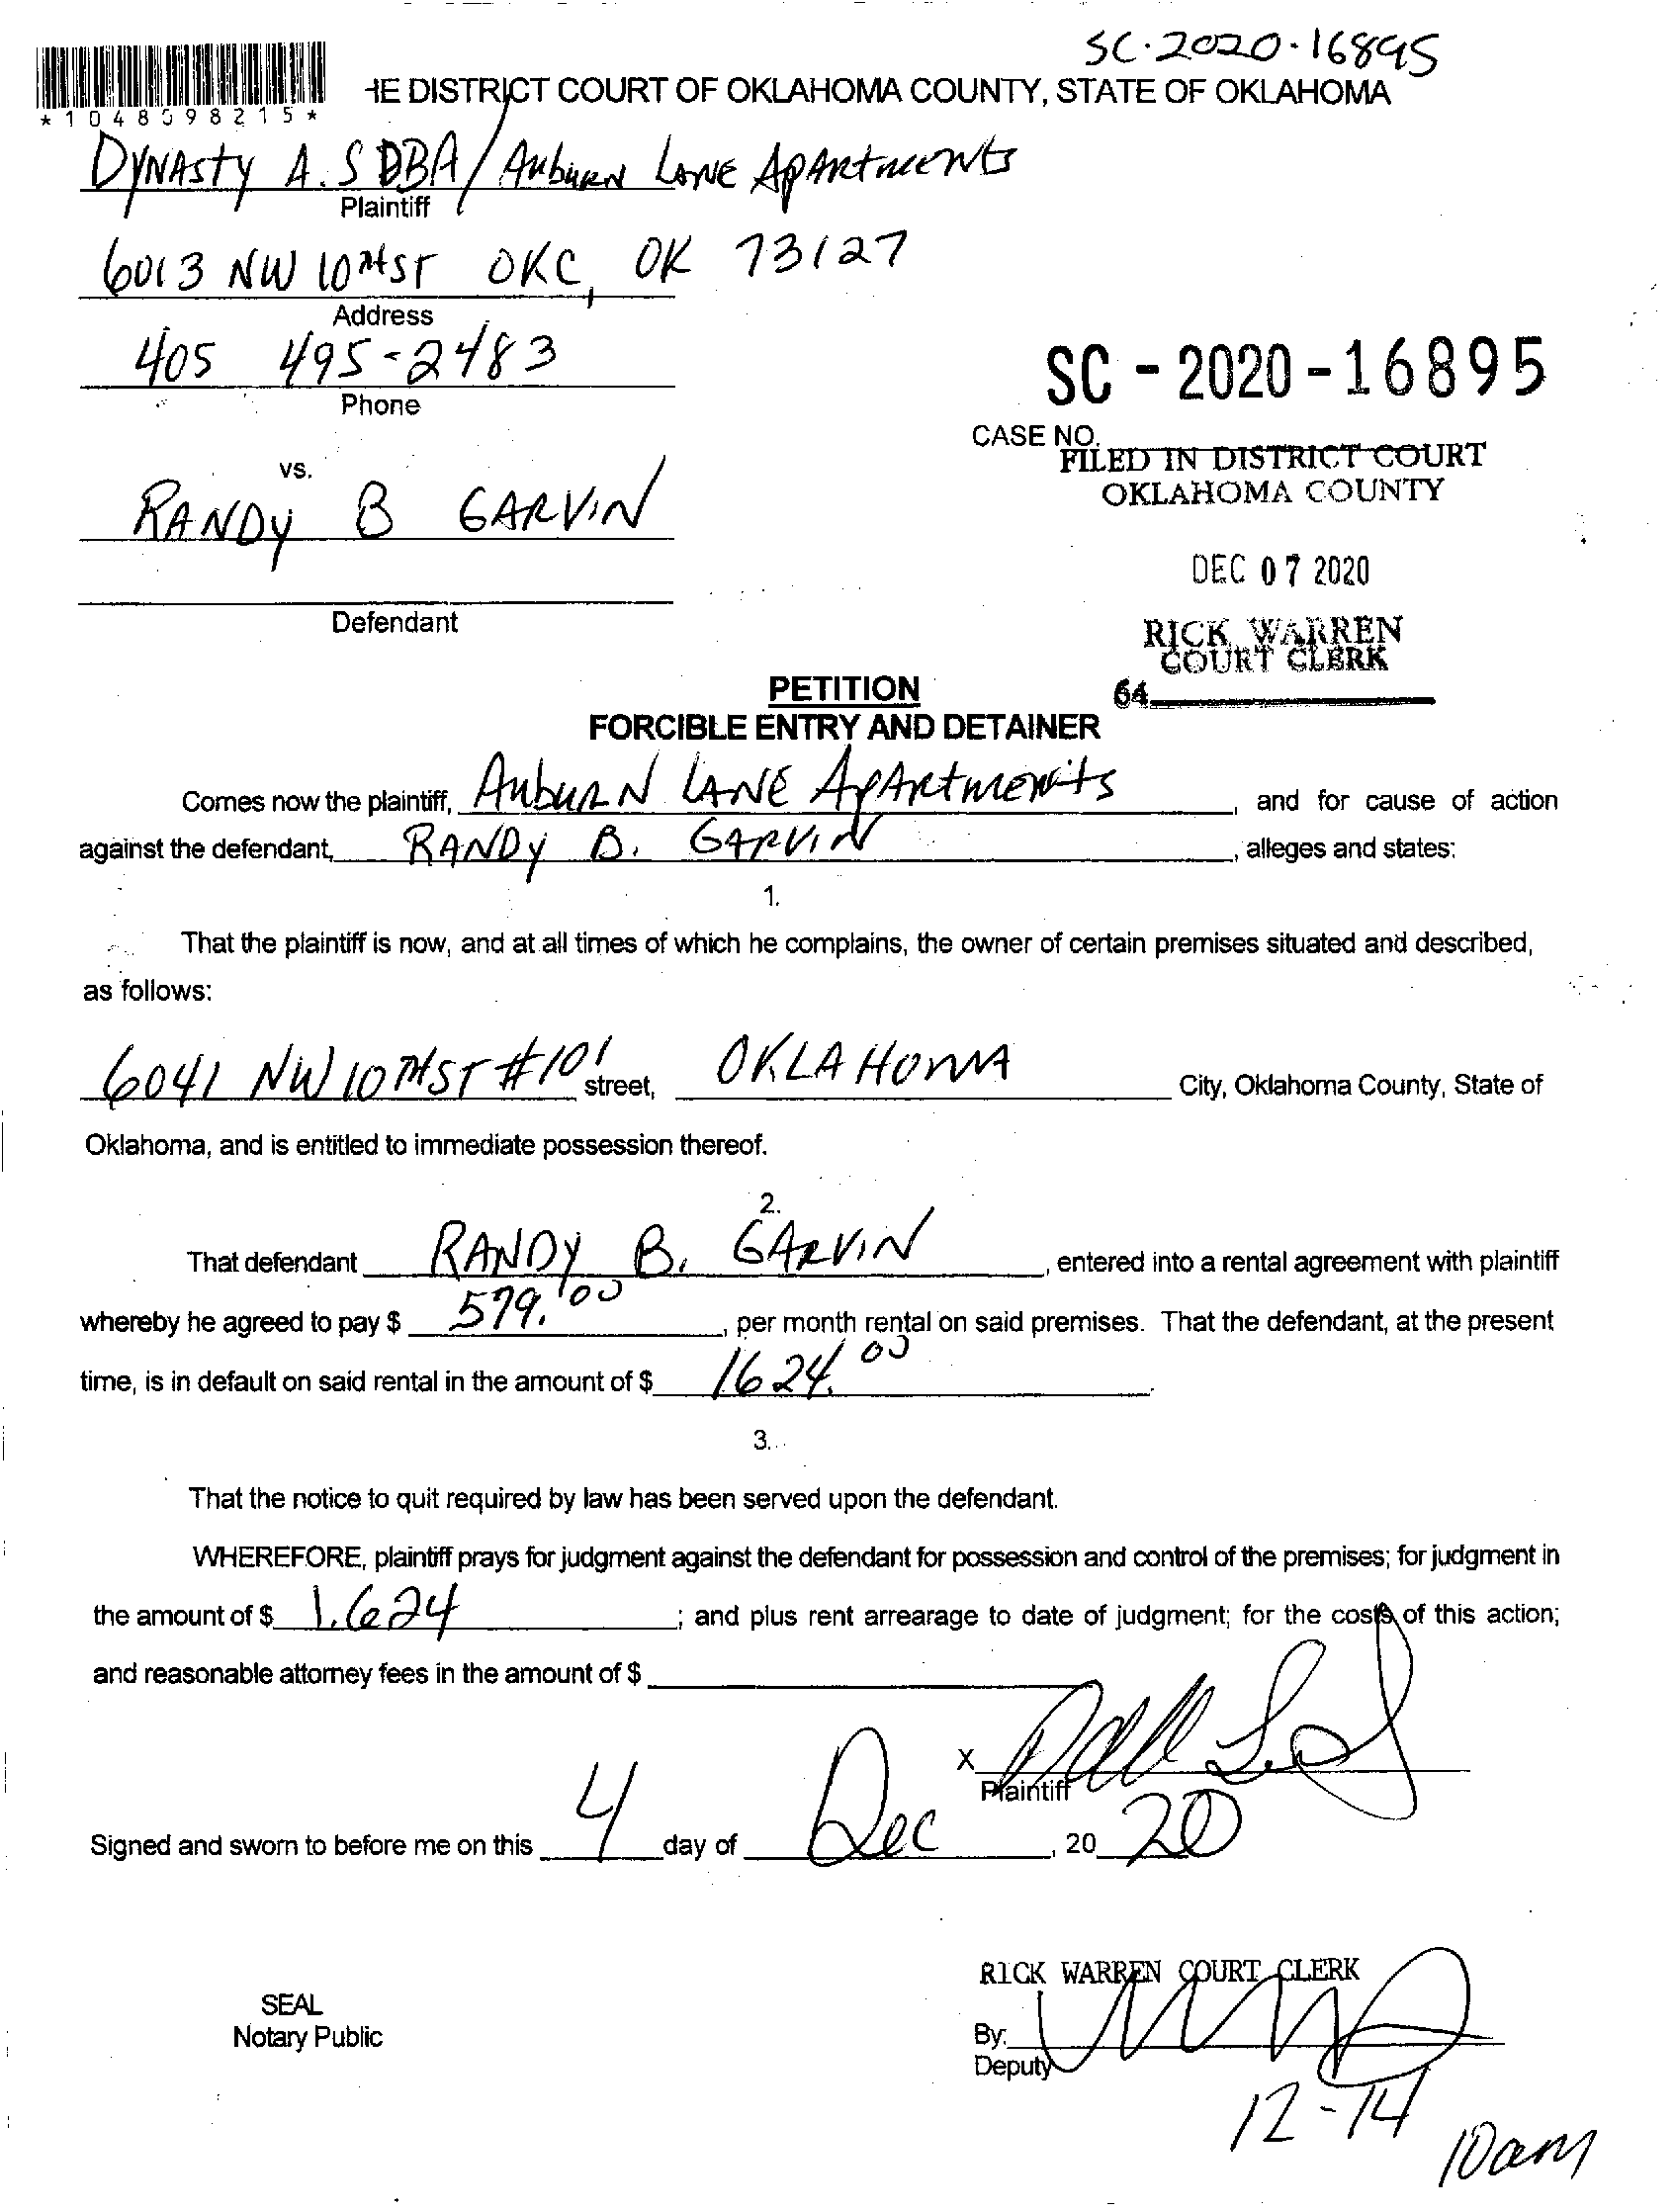 SC-2020-16895
HE DISTRICT COURT OF OKLAHOMA COUNTY, STATE OF OKLAHOMA
*1048598215*
DYNASTY A.S DBA / AUBURN LANE APARTMENTS
Plaintiff
6013 NW 10TH ST OKC, OK 73127
Address
405 495-2483
Phone
SC-2020-16895
CASE NO.
FILED IN DISTRICT COURT
OKLAHOMA COUNTY
vs.
RANDY B GARVIN
DEC 07 2020
Defendant
RICK WARREN
COURT CLERK
64
PETITION
FORCIBLE ENTRY AND DETAINER
Comes now the plaintiff, AUBURN LANE APARTMENTS, and for cause of action
against the defendant, RANDY B. GARVIN, alleges and states:
1.
That the plaintiff is now, and at all times of which he complains, the owner of certain premises situated and described,
as follows:
6041 NW 10TH ST #101 street, OKLAHOMA City, Oklahoma County, State of
Oklahoma, and is entitled to immediate possession thereof.
2.
That defendant RANDY B. GARVIN, entered into a rental agreement with plaintiff
whereby he agreed to pay $ 579.00, per month rental on said premises. That the defendant, at the present
time, is in default on said rental in the amount of $ 1624.00.
3.
That the notice to quit required by law has been served upon the defendant.
WHEREFORE, plaintiff prays for judgment against the defendant for possession and control of the premises; for judgment in
the amount of $ 1.624; and plus rent arrearage to date of judgment; for the costs of this action;
and reasonable attorney fees in the amount of $
X
Plaintiff
Signed and sworn to before me on this 4 day of Dec, 20 20
RICK WARREN COURT CLERK
SEAL
Notary Public
By:
Deputy
12-14
10am